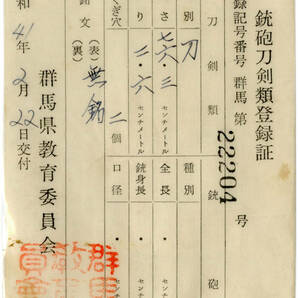 銃砲刀剣類登録証
登録記号番号 群馬 第 22204 号
刀剣類 銃砲
種別 刀 種別
長さ 七六・三 センチメートル 全長 ・ センチ
反り 二・六 センチメートル 銃身長 ・ センチ
目くぎ穴 二個 口径 ・ センチ
銘文 (表) 無銘
(裏)
昭和41年2月22日交付
群馬県教育委員会